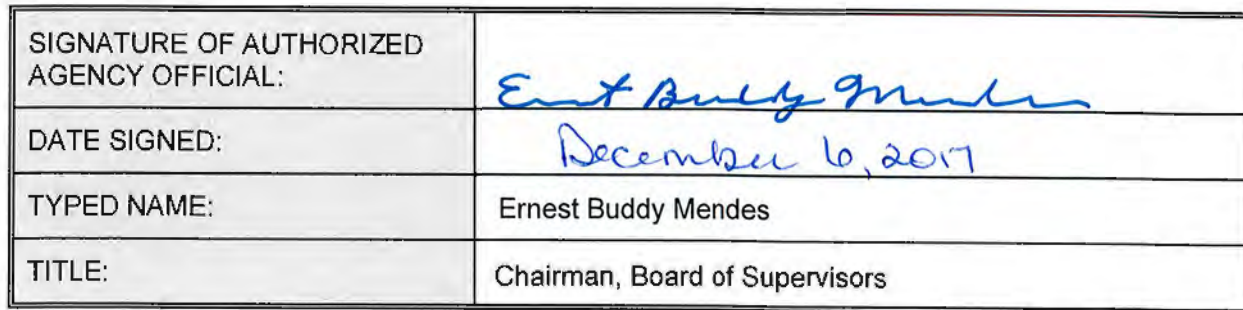 SIGNATURE OF AUTHORIZED
AGENCY OFFICIAL:
Ernest Buddy Mendes
DATE SIGNED:
December 6, 2017
TYPED NAME:
Ernest Buddy Mendes
TITLE:
Chairman, Board of Supervisors